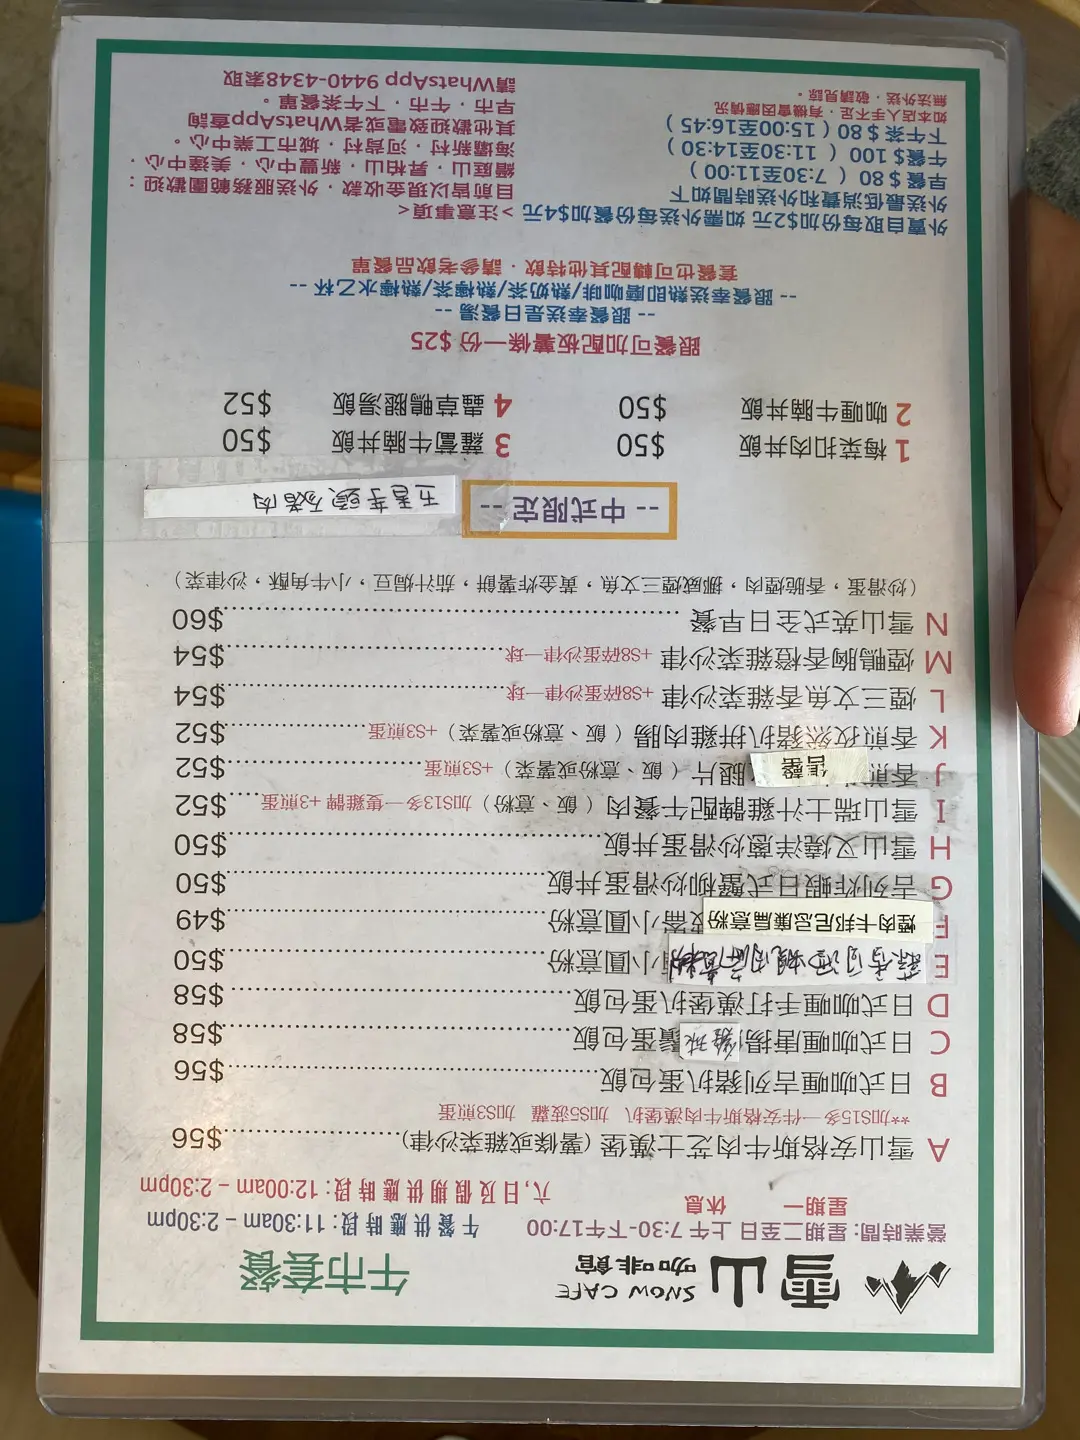 雪山 咖啡館 SNOW CAFE 午市套餐
營業時間: 星期二至日 上午 7:30-下午17:00 午餐供應時段: 11:30am – 2:30pm
星期一 休息 六,日及假期供應時段: 12:00am – 2:30pm
A 雪山安格斯牛肉芝士漢堡 (薯條或雜菜沙律) $56
**加$15多一件安格斯牛肉漢堡扒 加$5菠蘿 加$3煎蛋
B 日式咖喱吉列豬扒蛋包飯 $56
C 日式咖喱唐揚 雞球 蛋包飯 $58
D 日式咖喱手打漢堡扒蛋包飯 $58
E 小圓意粉 $50
F 煙肉卡邦尼忌廉扁意粉 小圓意粉 $49
G 吉列炸蝦日式蟹柳炒滑蛋丼飯 $50
H 雪山叉燒洋蔥炒滑蛋丼飯 $50
I 雪山瑞士汁雞髀配午餐肉(飯、意粉) 加$13多一隻雞髀 +3煎蛋 $52
J 香煎 售罄 腿片(飯、意粉或薯菜) +$3煎蛋 $52
K 香煎孜然豬扒拼雞肉腸(飯、意粉或薯菜) +$3煎蛋 $52
L 煙三文魚香雜菜沙律 +$8碎蛋沙律一球 $54
M 煙鴨胸香橙雜菜沙律 +$8碎蛋沙律一球 $54
N 雪山英式全日早餐 $60
(炒滑蛋,香脆煙肉,挪威煙三文魚,黃金炸薯餅,茄汁焗豆,小牛角酥,沙律菜)
-- 中式限定 --
1 梅菜扣肉丼飯 $50 3 蘿蔔牛腩丼飯 $50
2 咖喱牛腩丼飯 $50 4 蟲草鴨腿湯飯 $52
跟餐可加配粗板薯條一份 $25
-- 跟餐奉送是日餐湯 --
-- 跟餐奉送熱即磨咖啡/熱奶茶/熱檸茶/熱檸水乙杯 --
套餐也可轉配其他特飲.請參考飲品餐單
外賣自取每份加$2元 如需外送每份餐加$4元
外送最低消費和外送時間如下
早餐 $ 80 ( 7:30至11:00 )
午餐$ 100 ( 11:30至14:30 )
下午茶 $ 80 ( 15:00至16:45 )
如本店人手不足.有機會因應情況
無法外送.敬請見諒.
>注意事項<
目前皆以現金收款.外送服務範圍歡迎:
繼庭山.昇柏山.新豐中心.美達中心.
海罈新村.河背村.城市工業中心。
其他歡迎致電或者WhatsApp查詢
早市.午市.下午茶餐單。
請WhatsApp 9440-4348索取